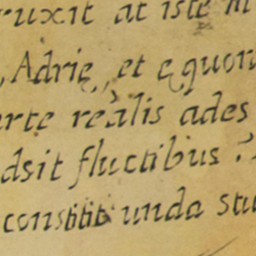 ruxit at iste m
, Adrię, et ęquor
arte reàlis ades
dsit fluctibus ?
constitit unda stu